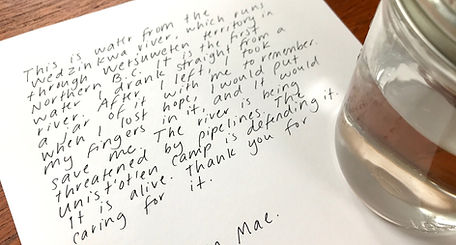 This is water from the
Wedzinkwa river, which runs
through Wetsuweten territory in
Northern B.C. It is the first
water I drank straight from a
river. After I left, I took
a jar of it with me to remember.
When I lost hope, I would put
my fingers in it, and it would
save me. The river is being
threatened by pipelines. The
Unist'oten camp is defending it.
It is alive. Thank you for
caring for it.
Mae.